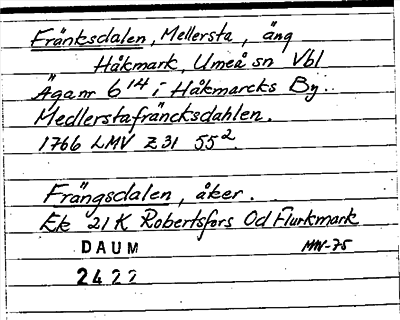 Fränksdalen, Mellersta, äng
Håkmark, Umeå sn Vbl
Äganr 6 14 i Håkmarcks By.
Medlerstafräncksdahlen.
1766 LMV Z 31 55².
Frängsdalen, åker.
Ek 21 K Robertsfors Od Flurkmark
DAUM MW-75
2422